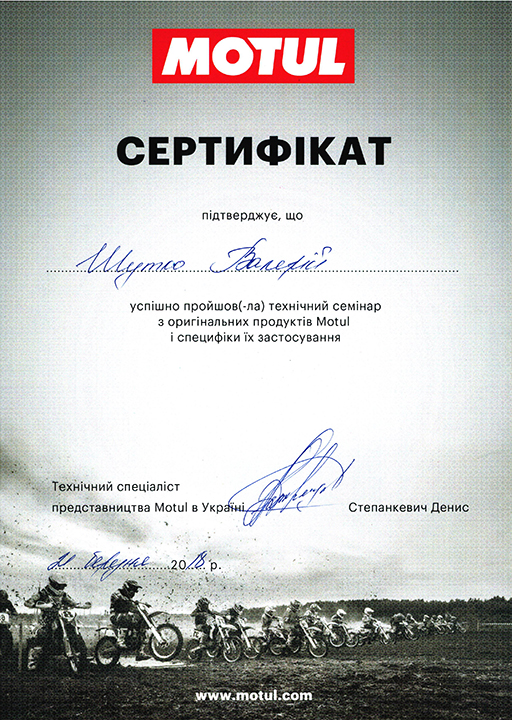 MOTUL
СЕРТИФІКАТ
підтверджує, що
Шутко Валерій
успішно пройшов(-ла) технічний семінар
з оригінальних продуктів Motul
і специфіки їх застосування
Технічний спеціаліст
представництва Motul в Україні
Степанкевич Денис
21 березня 2018 р.
www.motul.com